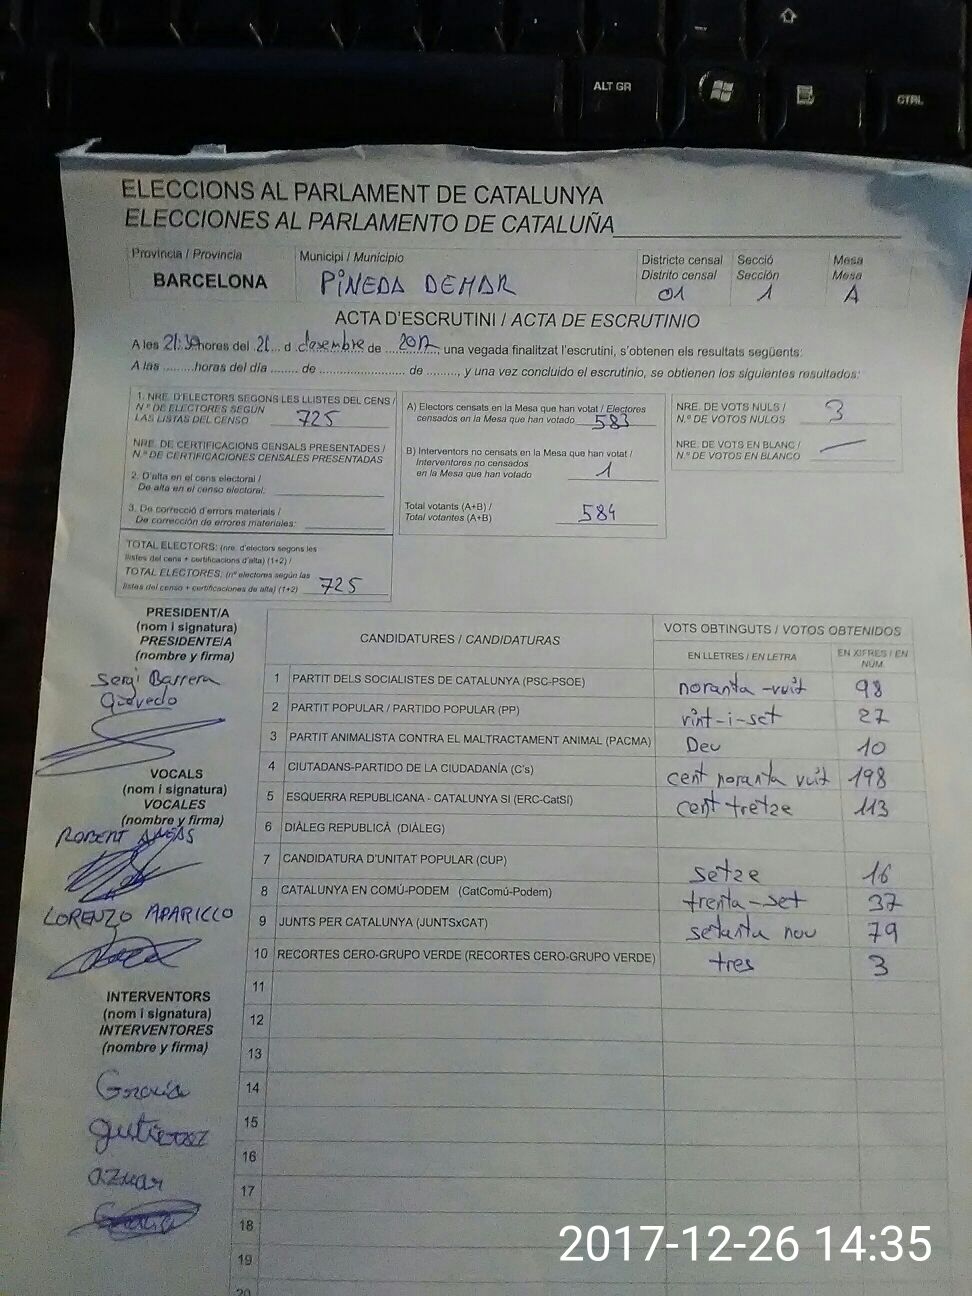 ALT GR
CTRL
ELECCIONS AL PARLAMENT DE CATALUNYA
ELECCIONES AL PARLAMENTO DE CATALUÑA
Provincia / Provincia
BARCELONA
Municipi / Municipio
PINEDA DEMAR
Districte censal
Distrito censal
01
Secció
Sección
1
Mesa
Mesa
A
ACTA D'ESCRUTINI / ACTA DE ESCRUTINIO
A les 21:30 hores del 21 d desembre de 2017, una vegada finalitzat l'escrutini, s'obtenen els resultats següents:
A las .........horas del día ....... de ........................ de ........, y una vez concluido el escrutinio, se obtienen los siguientes resultados:
1. NRE. D'ELECTORS SEGONS LES LLISTES DEL CENS /
N.º DE ELECTORES SEGÚN
LAS LISTAS DEL CENSO 725
NRE. DE CERTIFICACIONS CENSALS PRESENTADES /
N.º DE CERTIFICACIONES CENSALES PRESENTADAS
2. D'alta en el cens electoral /
De alta en el censo electoral:
3. De correcció d'errors materials /
De corrección de errores materiales:
TOTAL ELECTORS: (nre. d'electors segons les
llistes del cens + certificacions d'alta) (1+2) /
TOTAL ELECTORES: (nº electores según las
listas del censo + certificaciones de alta) (1+2) 725
A) Electors censats en la Mesa que han votat / Electores
censados en la Mesa que han votado 583
B) Interventors no censats en la Mesa que han votat /
Interventores no censados
en la Mesa que han votado 1
Total votants (A+B) /
Total votantes (A+B) 584
NRE. DE VOTS NULS /
N.º DE VOTOS NULOS 3
NRE. DE VOTS EN BLANC /
N.º DE VOTOS EN BLANCO —
PRESIDENT/A
(nom i signatura)
PRESIDENTE/A
(nombre y firma)
Sergi Barrera
Quevedo
VOCALS
(nom i signatura)
VOCALES
(nombre y firma)
ROBERT
LORENZO APARICIO
INTERVENTORS
(nom i signatura)
INTERVENTORES
(nombre y firma)
García
gutierrez
aznar
CANDIDATURES / CANDIDATURAS
VOTS OBTINGUTS / VOTOS OBTENIDOS
EN LLETRES / EN LETRA
EN XIFRES / EN NÚM.
1 PARTIT DELS SOCIALISTES DE CATALUNYA (PSC-PSOE) noranta-vuit 98
2 PARTIT POPULAR / PARTIDO POPULAR (PP) vint-i-set 27
3 PARTIT ANIMALISTA CONTRA EL MALTRACTAMENT ANIMAL (PACMA) Deu 10
4 CIUTADANS-PARTIDO DE LA CIUDADANÍA (C's) cent noranta vuit 198
5 ESQUERRA REPUBLICANA - CATALUNYA SÍ (ERC-CatSí) cent tretze 113
6 DIÀLEG REPUBLICÀ (DIÀLEG)
7 CANDIDATURA D'UNITAT POPULAR (CUP) setze 16
8 CATALUNYA EN COMÚ-PODEM (CatComú-Podem) trenta-set 37
9 JUNTS PER CATALUNYA (JUNTSxCAT) setanta nou 79
10 RECORTES CERO-GRUPO VERDE (RECORTES CERO-GRUPO VERDE) tres 3
11
12
13
14
15
16
17
18
19
20
2017-12-26 14:35